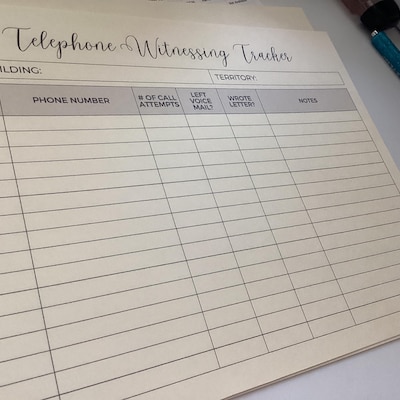 Telephone Witnessing Tracker
ILDING:
TERRITORY:
PHONE NUMBER
# OF CALL
ATTEMPTS
LEFT
VOICE
MAIL?
WROTE
LETTER?
NOTES